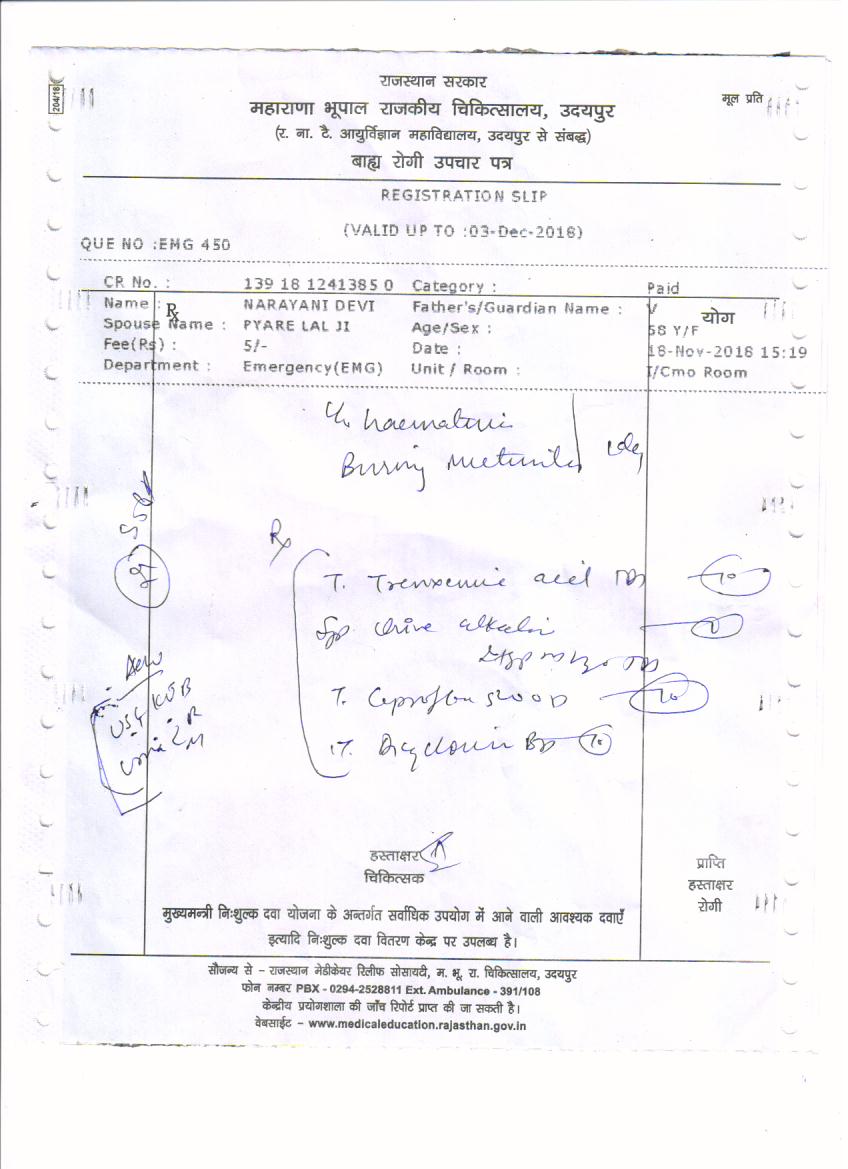 204/18
राजस्थान सरकार
मूल प्रति
महाराणा भूपाल राजकीय चिकित्सालय, उदयपुर
(र. ना. टै. आयुर्विज्ञान महाविद्यालय, उदयपुर से संबद्ध)
बाह्य रोगी उपचार पत्र
REGISTRATION SLIP
(VALID UP TO :03-Dec-2018)
QUE NO :EMG 450
CR No. : 139 18 1241385 0 Category : Paid
Name : NARAYANI DEVI Father's/Guardian Name : V
Rx योग
Spouse Name : PYARE LAL JI Age/Sex : 58 Y/F
Fee(Rs) : 5/- Date : 18-Nov-2018 15:19
Department : Emergency(EMG) Unit / Room : I/Cmo Room
c/o haematuri
Burning
Rx
T. acid 10
Syp alkalin
T. 500 10
T. BD 10
USG KUB
हस्ताक्षर
चिकित्सक
प्राप्ति
हस्ताक्षर
रोगी
मुख्यमन्त्री निःशुल्क दवा योजना के अन्तर्गत सर्वाधिक उपयोग में आने वाली आवश्यक दवाएँ
इत्यादि निःशुल्क दवा वितरण केन्द्र पर उपलब्ध है।
सौजन्य से – राजस्थान मेडीकेयर रिलीफ सोसायटी, म. भू. रा. चिकित्सालय, उदयपुर
फोन नम्बर PBX - 0294-2528811 Ext. Ambulance - 391/108
केन्द्रीय प्रयोगशाला की जाँच रिपोर्ट प्राप्त की जा सकती है।
वेबसाईट – www.medicaleducation.rajasthan.gov.in